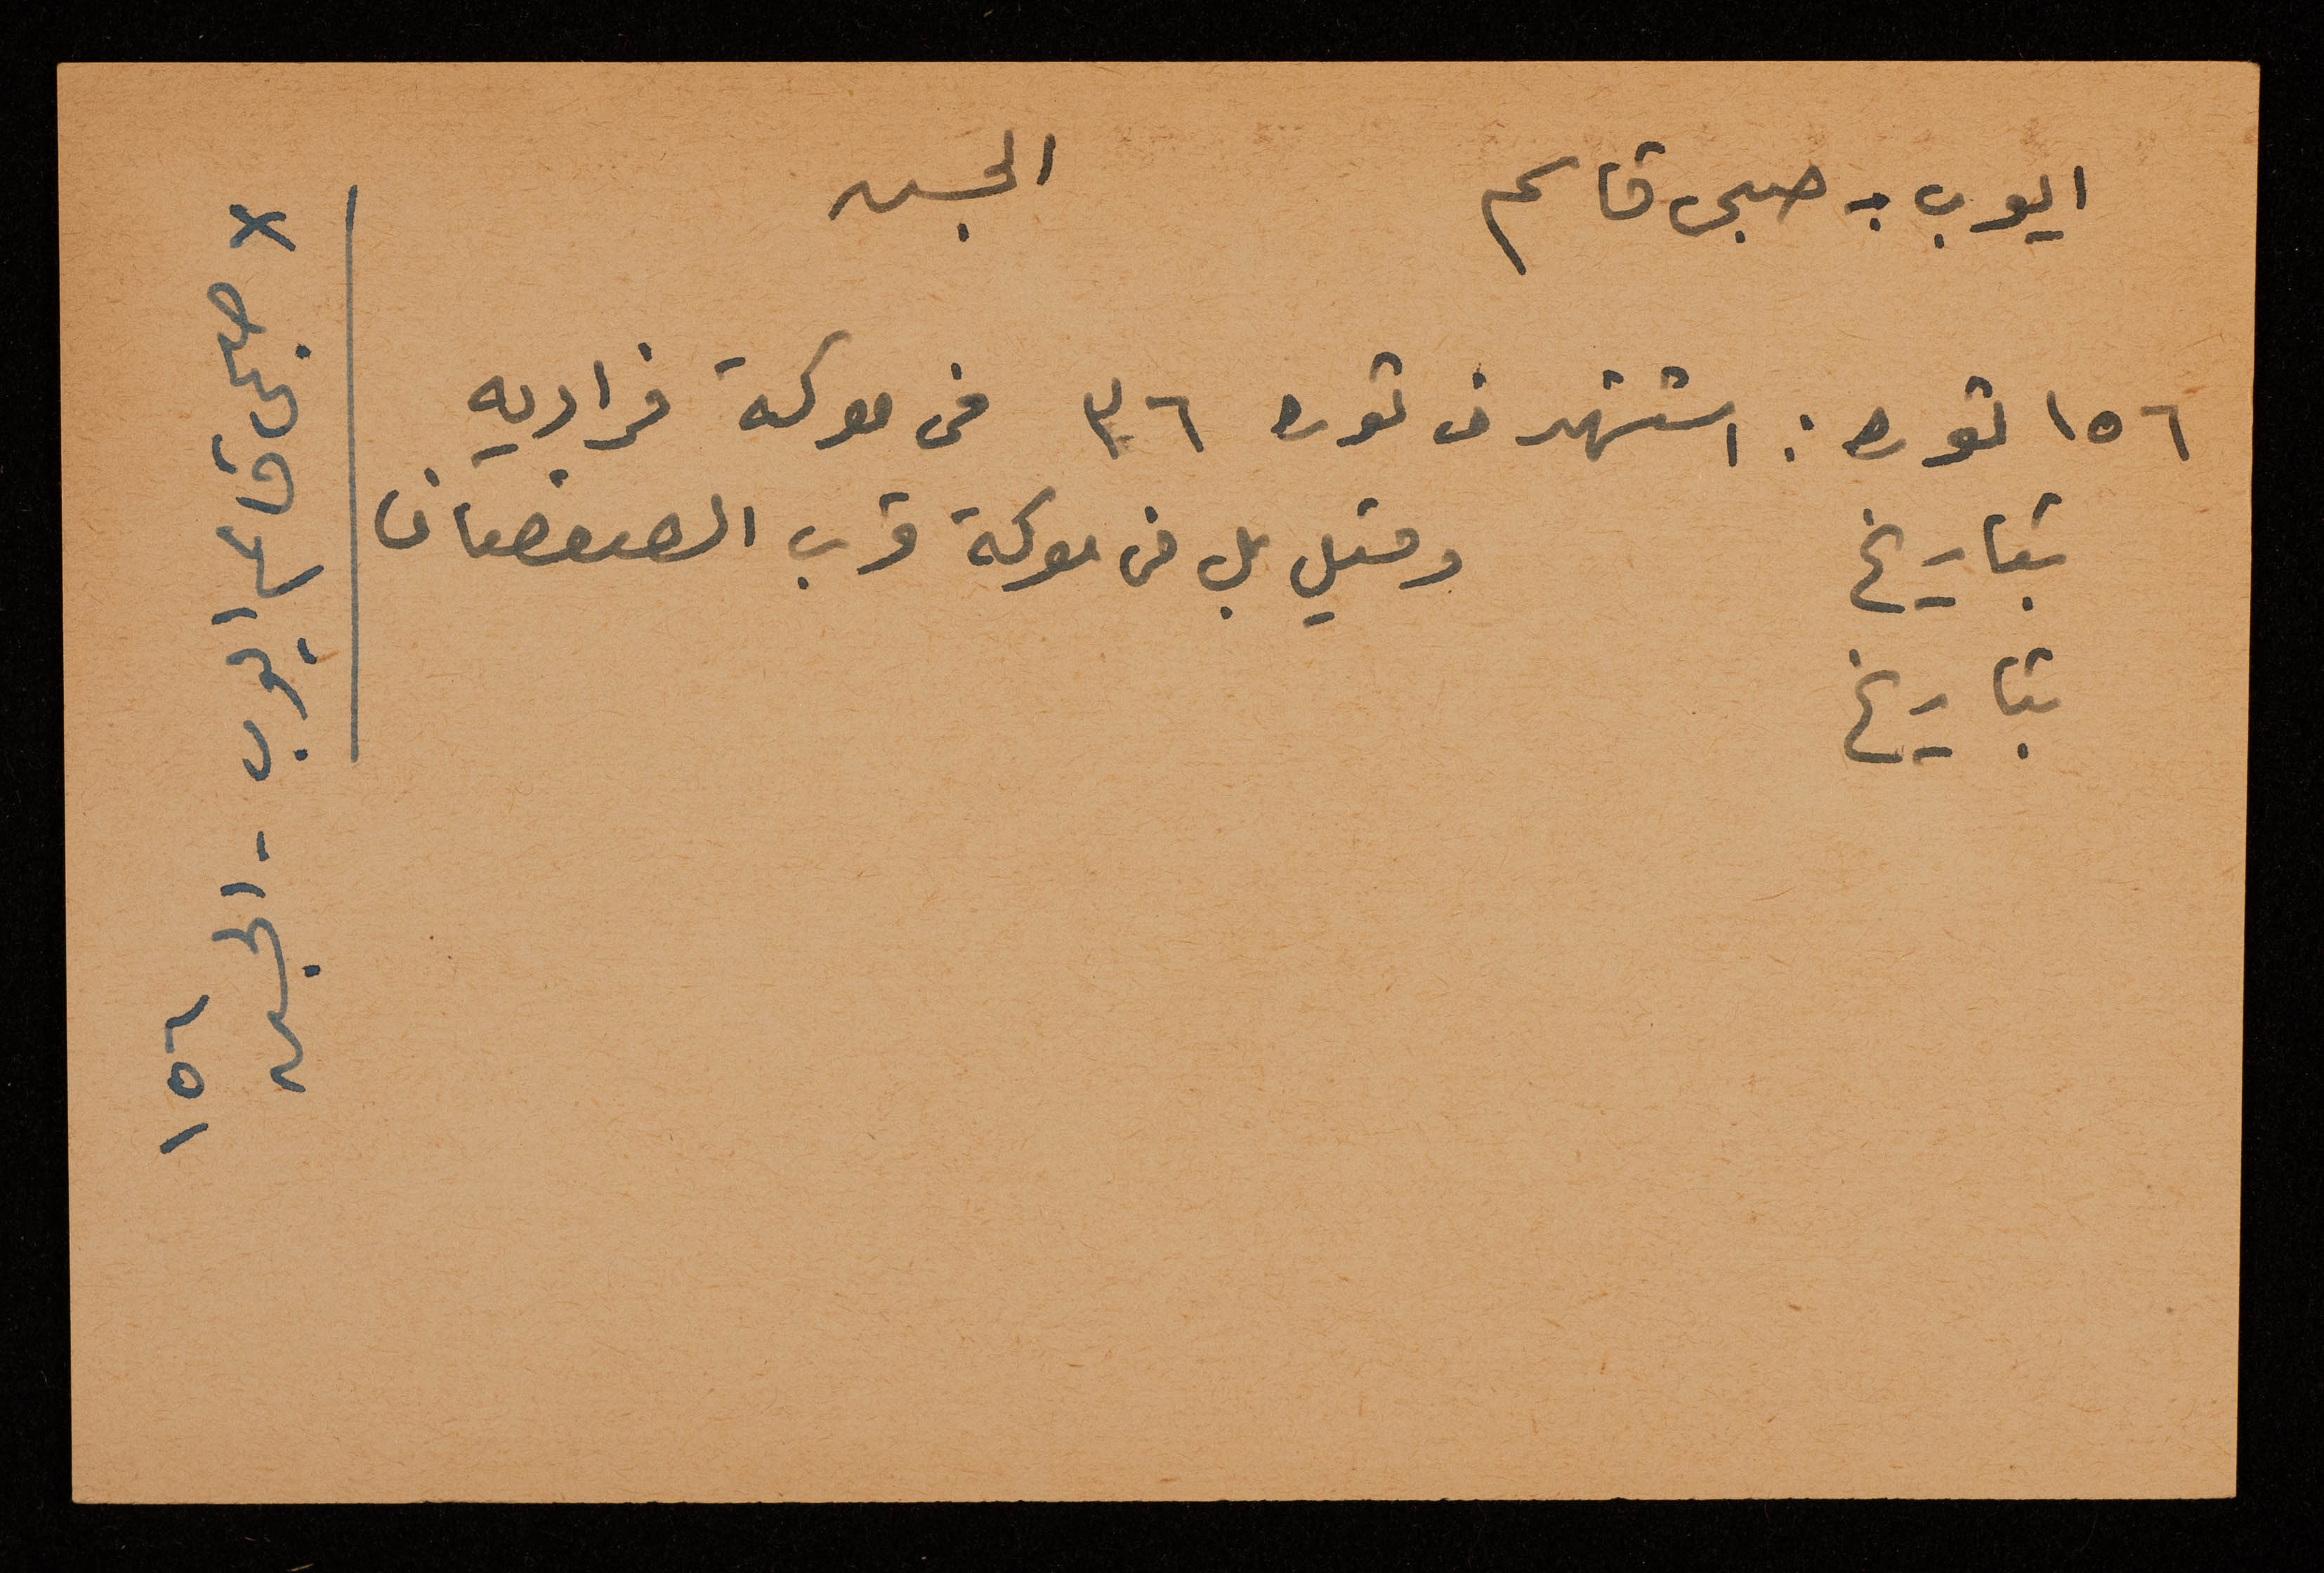 ايوب - صبحي قاسم الجسر
١٥٦ ثوره : استشهد ف ثوره ٣٦ في معركة فراديه
بتاريخ وقيل بل في معركة قرب الصفصاف
بتاريخ
x صبحي قاسم ايوب - الجسر
١٥٦